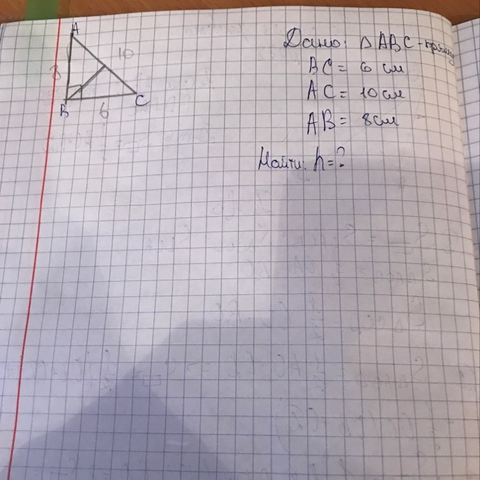 A
10
8
B
6
C
Дано: △ABC - прямоуг
BC = 6 см
AC = 10 см
AB = 8 см
Найти: h = ?